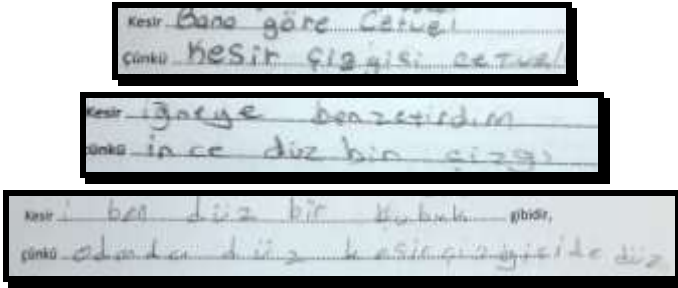 Kesir Bana göre Cetvel
Çünkü Kesir çizgisi cetvel
Kesir iğneye benzetirdim
çünkü ince düz bir çizgi
Kesir i ben düz bir çubuk gibidir,
çünkü odanda düz kesir çizgiside düz